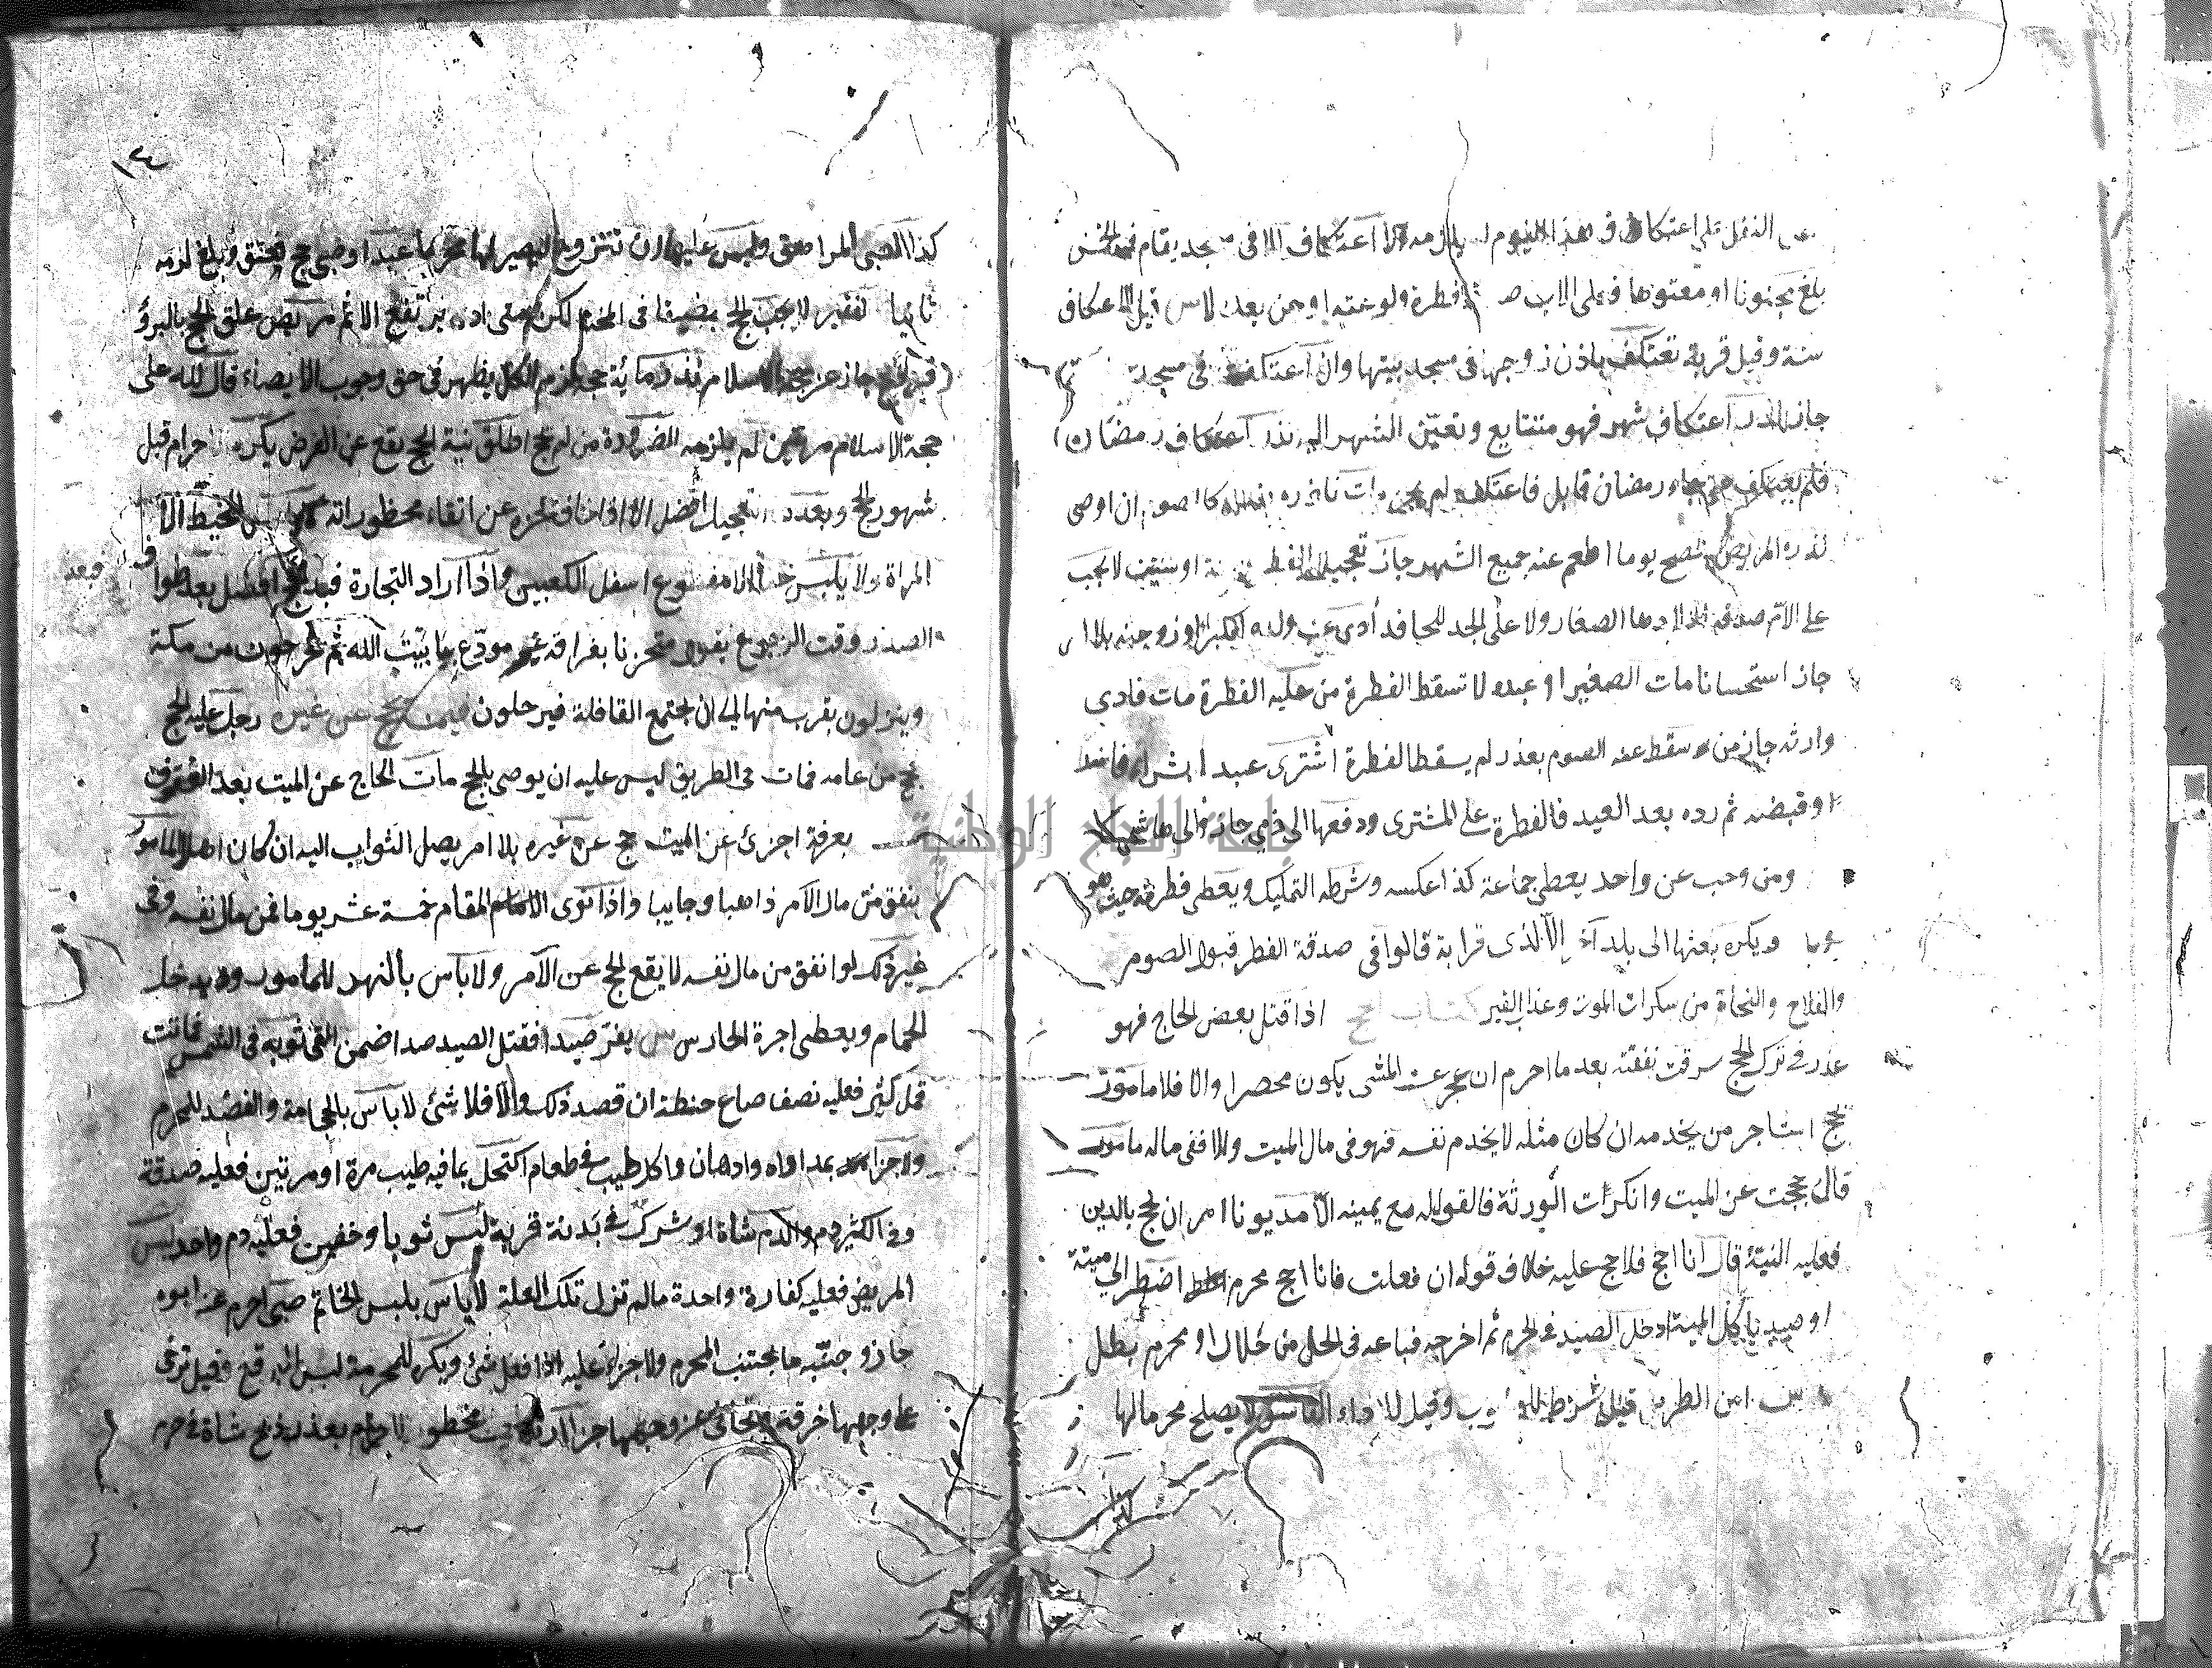 النفل على اعتكاف في هذا اليوم يلزمه لا اعتكاف الا في مسجد يقام فيه الخمس
بلغ مجنونا او معتوها فعلى الاب فطرة ولو عته او جن بعد لاس قيل الاعتكاف
سنة وقيل قربة تعتكف باذن زوجها في مسجد بيتها وان اعتكفت في مسجد
جاز نذر اعتكاف شهر فهو متتابع وتعين الشهر اليه نذر اعتكاف رمضان
فلم يعتكف حتى جاء رمضان قابل فاعتكف لم يجز مات ناذره ان اوصى
نذره المريض فصح يوما اطعم عنه جميع الشهر جاز تعجيل الفطرة سنة او سنتين لا يجب
على الام صدقة اولادها الصغار ولا على الجد للحافد أدى عن ولده الكبير او زوجته بلا امر
جاز استحسانا مات الصغير او عبده لا تسقط الفطرة من عليه الفطرة مات فادى
وارثه جاز من سقط عنه الصوم بعذر لم يسقط الفطرة اشترى عبدا بشراء فاسد
او قبضه ثم رده بعد العيد فالفطرة على المشترى ودفعها الى ذمي جاز والى هاشمي لا
ومن وجب عن واحد يعطى جماعة كذا عكسه وشرطه التمليك ويعطى فطرته حيث هو
ويكره بعثها الى بلد آخر الا لذى قرابة قالوا في صدقة الفطر قبول الصوم
والفلاح والنجاة من سكرات الموت وعذاب القبر كتاب الحج اذا قتل بعض الحاج فهو
عذر في ترك الحج سرقت نفقته بعد ما احرم ان عجز عن المشى يكون محصرا والا فلا مامور
بحج استاجر من يخدمه ان كان مثله لا يخدم نفسه فهو في مال الميت والا ففى ماله مامور
قال حججت عن الميت وانكرت الورثة فالقول له مع يمينه الا مديونا امر ان يحج بالدين
فعليه البينة قال انا احج فلا حج عليه خلاف قوله ان فعلت فانا احج محرم اضطر الى ميتة
او صيد ياكل الميتة ادخل الصيد في الحرم ثم اخرجه فباعه في الحل من حلال او محرم بطل
امن الطريق قيل شرط الوجوب وقيل للاداء الفاسق لا يصلح محرما لها
١٤
كذا الصبي المراهق وليس عليها ان تتزوج ليصير لها محرما عبد او صبى حج فعتق وبلغ لزمه
ثانيا الفقير لا يجب الحج مضيقا في المختار لكن متى اداه يرتفع الاثم مريض علق الحج بالبرؤ
فبرئ فحج جاز عن حجة الاسلام نذر مائة حجة لزم الكل يظهر في حق وجوب الايصاء قال لله على
حجة الاسلام مرتين لم يلزمه الضرورة من لم يحج اطلق نية الحج يقع عن الفرض يكره احرام قبل
شهور الحج وبعده التعجيل افضل الا اذا خاف عجزه عن اتقاء محظوراته كلبس المخيط الا
المراة ولا يلبس خفا الا مقطوع اسفل الكعبين واذا اراد التجارة فبعد الحج افضل بعد طواف
الصدر وقت الرجوع يقول متحزنا بفراقه غير مودع يا بيت الله ثم يخرجون من مكة
وينزلون بقرب منها الى ان يجتمع القافلة فيرحلون فيمن يحج عن غيره رجل عليه الحج
حج من عامه فمات في الطريق ليس عليه ان يوصى بالحج مات الحاج عن الميت بعد الوقوف
بعرفة اجزئ عن الميت حج عن غيره بلا امر يصل الثواب اليه ان كان اهلا المامور
ينفق من مال الآمر ذاهبا وجايبا واذا نوى المقام خمسة عشر يوما فمن مال نفسه وفى
غير ذلك لو انفق من مال نفسه لا يقع الحج عن الآمر ولا باس بالنهد للمامور ويدخل
الحمام ويعطى اجرة الحارس س يفر صيدا فقتل الصيد صيدا ضمن القى ثوبه في الشمس فماتت
قمل كثير فعليه نصف صاع حنطة ان قصد ذلك والا فلا شئ لا باس بالحجامة والفصد للمحرم
ولا جزاء بمداواه وادهان واكل طيب في طعام اكتحل بما فيه طيب مرة او مرتين فعليه صدقة
وفى الكثير دم والدم شاة او شرك في بدنة قربة لبس ثوبا وخفين فعليه دم واحد لبس
المريض فعليه كفارة واحدة ما لم تزل تلك العلة لا باس بلبس الخاتم صبى احرم عنه ابوه
جاز وجنبه ما يجتنب المحرم ولا جزاء عليه اذا فعل شئ ويكره للمحرمة لبس البرقع وقيل ترخى
على وجهها خرقة وتجافى عن وجهها جزاء محظور الاحرام بعذر ذبح شاة في حرم